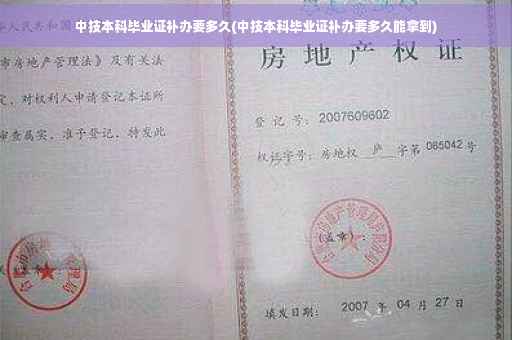 中技本科毕业证补办要多久(中技本科毕业证补办要多久能拿到)
华人民共和国
市房地产管理法》及有关法
定，对权利人申请登记本证所
审查属实，准予登记，特发此
房地产权证
登记号：2007609602
权证字号：房地权 庐 字第 085042 号
(盖章)：
填发日期：2007 年 04 月 27 日